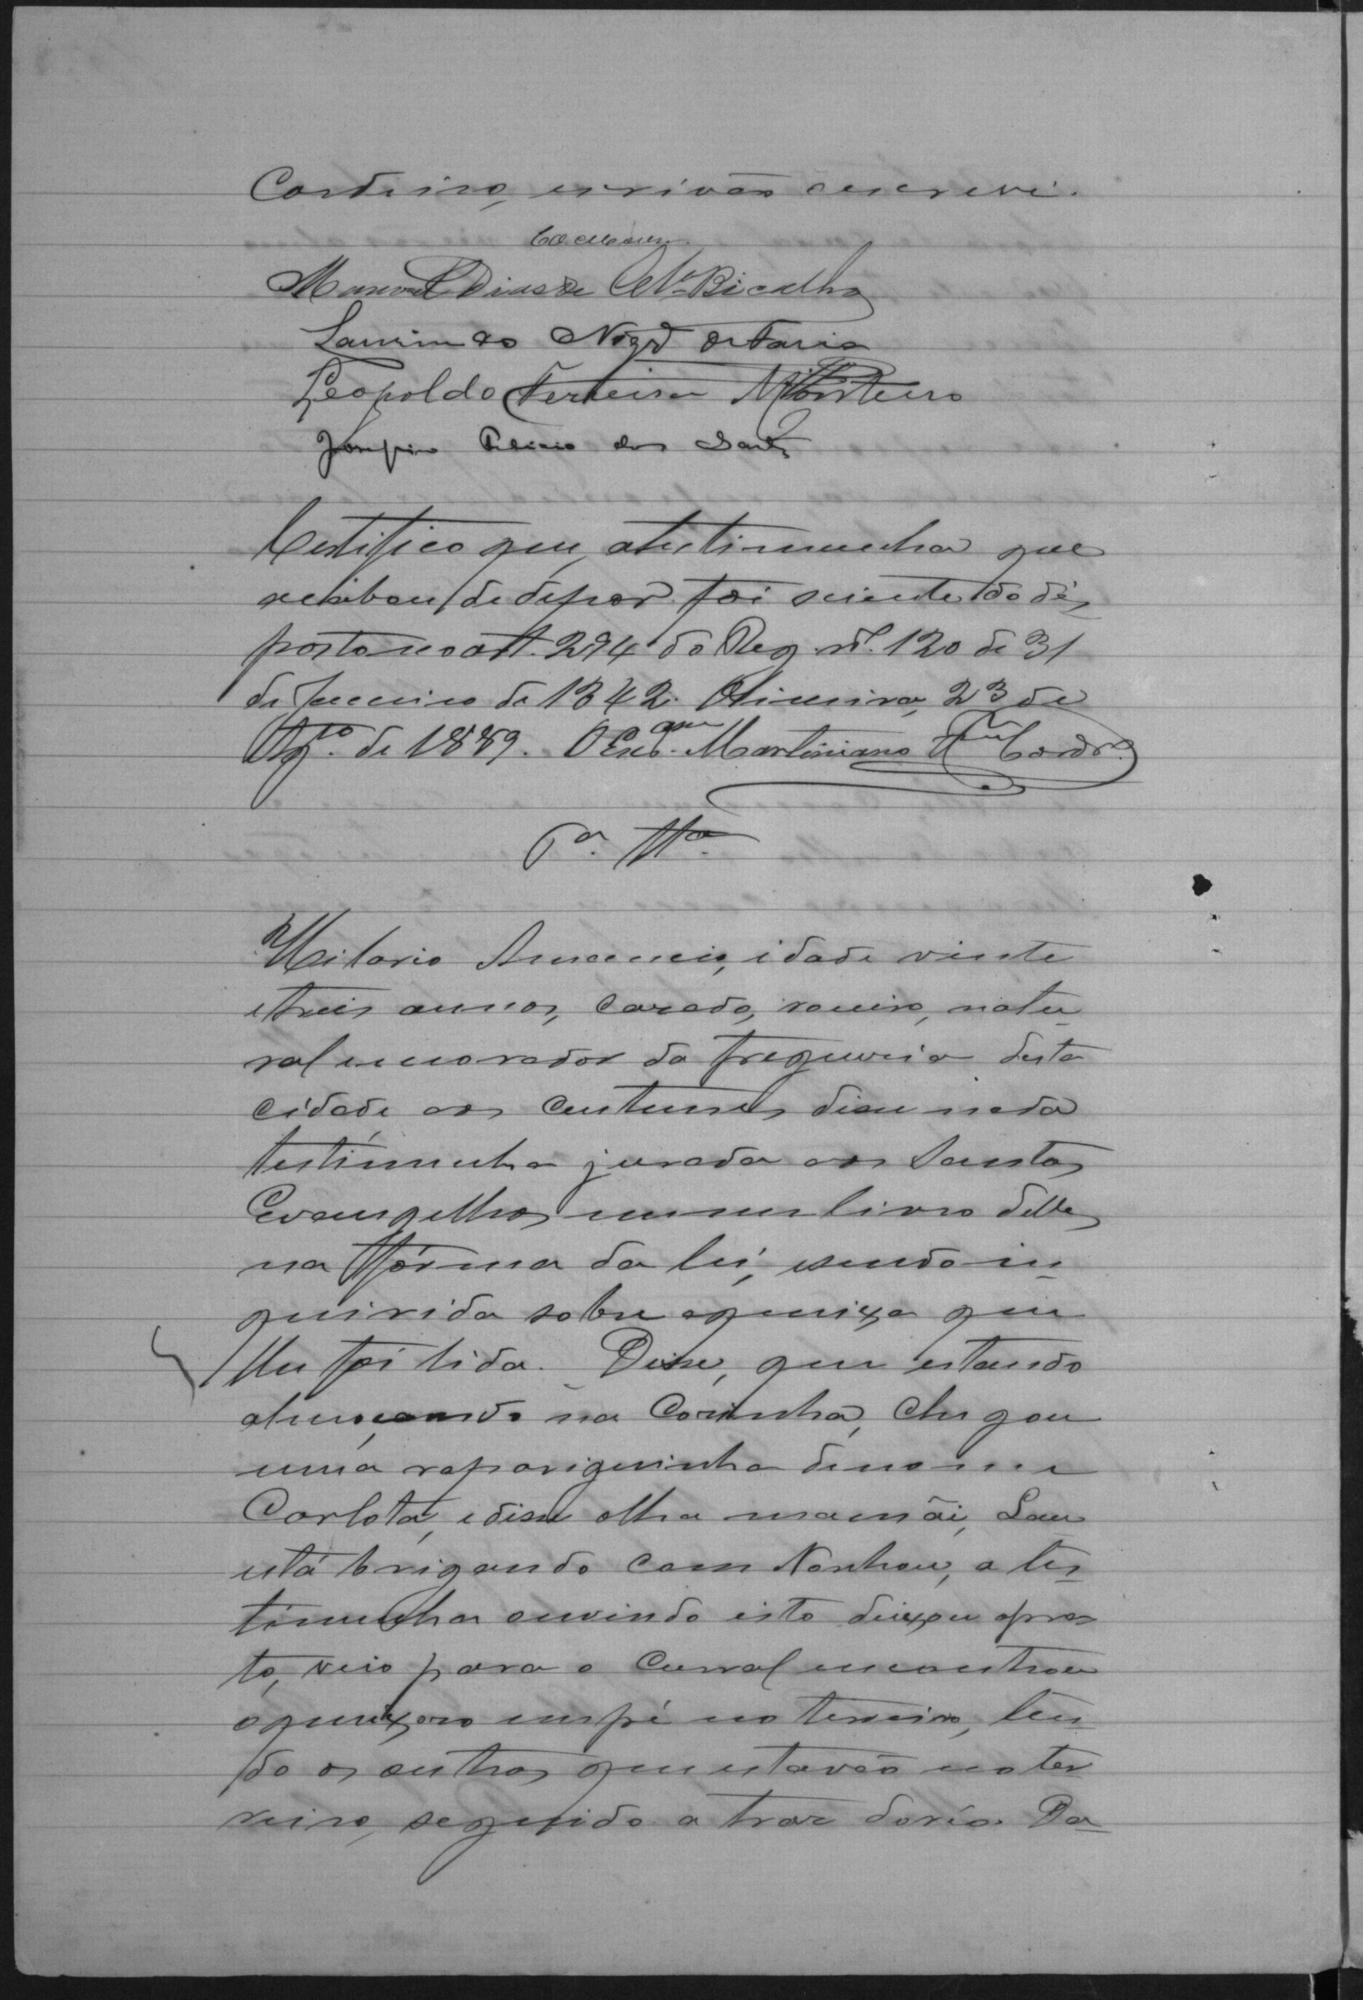 Cordeiro, escrivão o escrevi.
Manoel Dias de Bicalho
Laurindo Nogra de Faria
Leopoldo Ferreira Monteiro
Felicio dos Santos
Certifico que, a testimunha que
acabou de depor foi sciente do dis
posto no art. 294 do Reg. nº. 120 de 31
de Janeiro de 1842. Oliveira, 23 de
Agto. de 1889. O Escam. Martiniano Cordro.
6a. Tta.
Hilario Amancio, idade vinte
e treis annos, casado, roceiro, natu
ral e morador da freguesia desta
cidade, aos costumes disse nada
testimunha jurada aos Santos
Evangelhos em um livro delles
na fórma da lei, e sendo in
quirida sobre a queixa que
lhe foi lida. Disse, que estando
almoçando na Cosinha, chegou
uma raparigurinha de nome
Carlota, e disse olha mamãi, Lau
está brigando com Nonhou, a tes
timunha ouvindo isto deixou o pra
to, veio para o curral encontrou
o queixoso em pé no terreiro, ten
do os outros que estavão no ter
reiro, seguido a traz do réo. Da